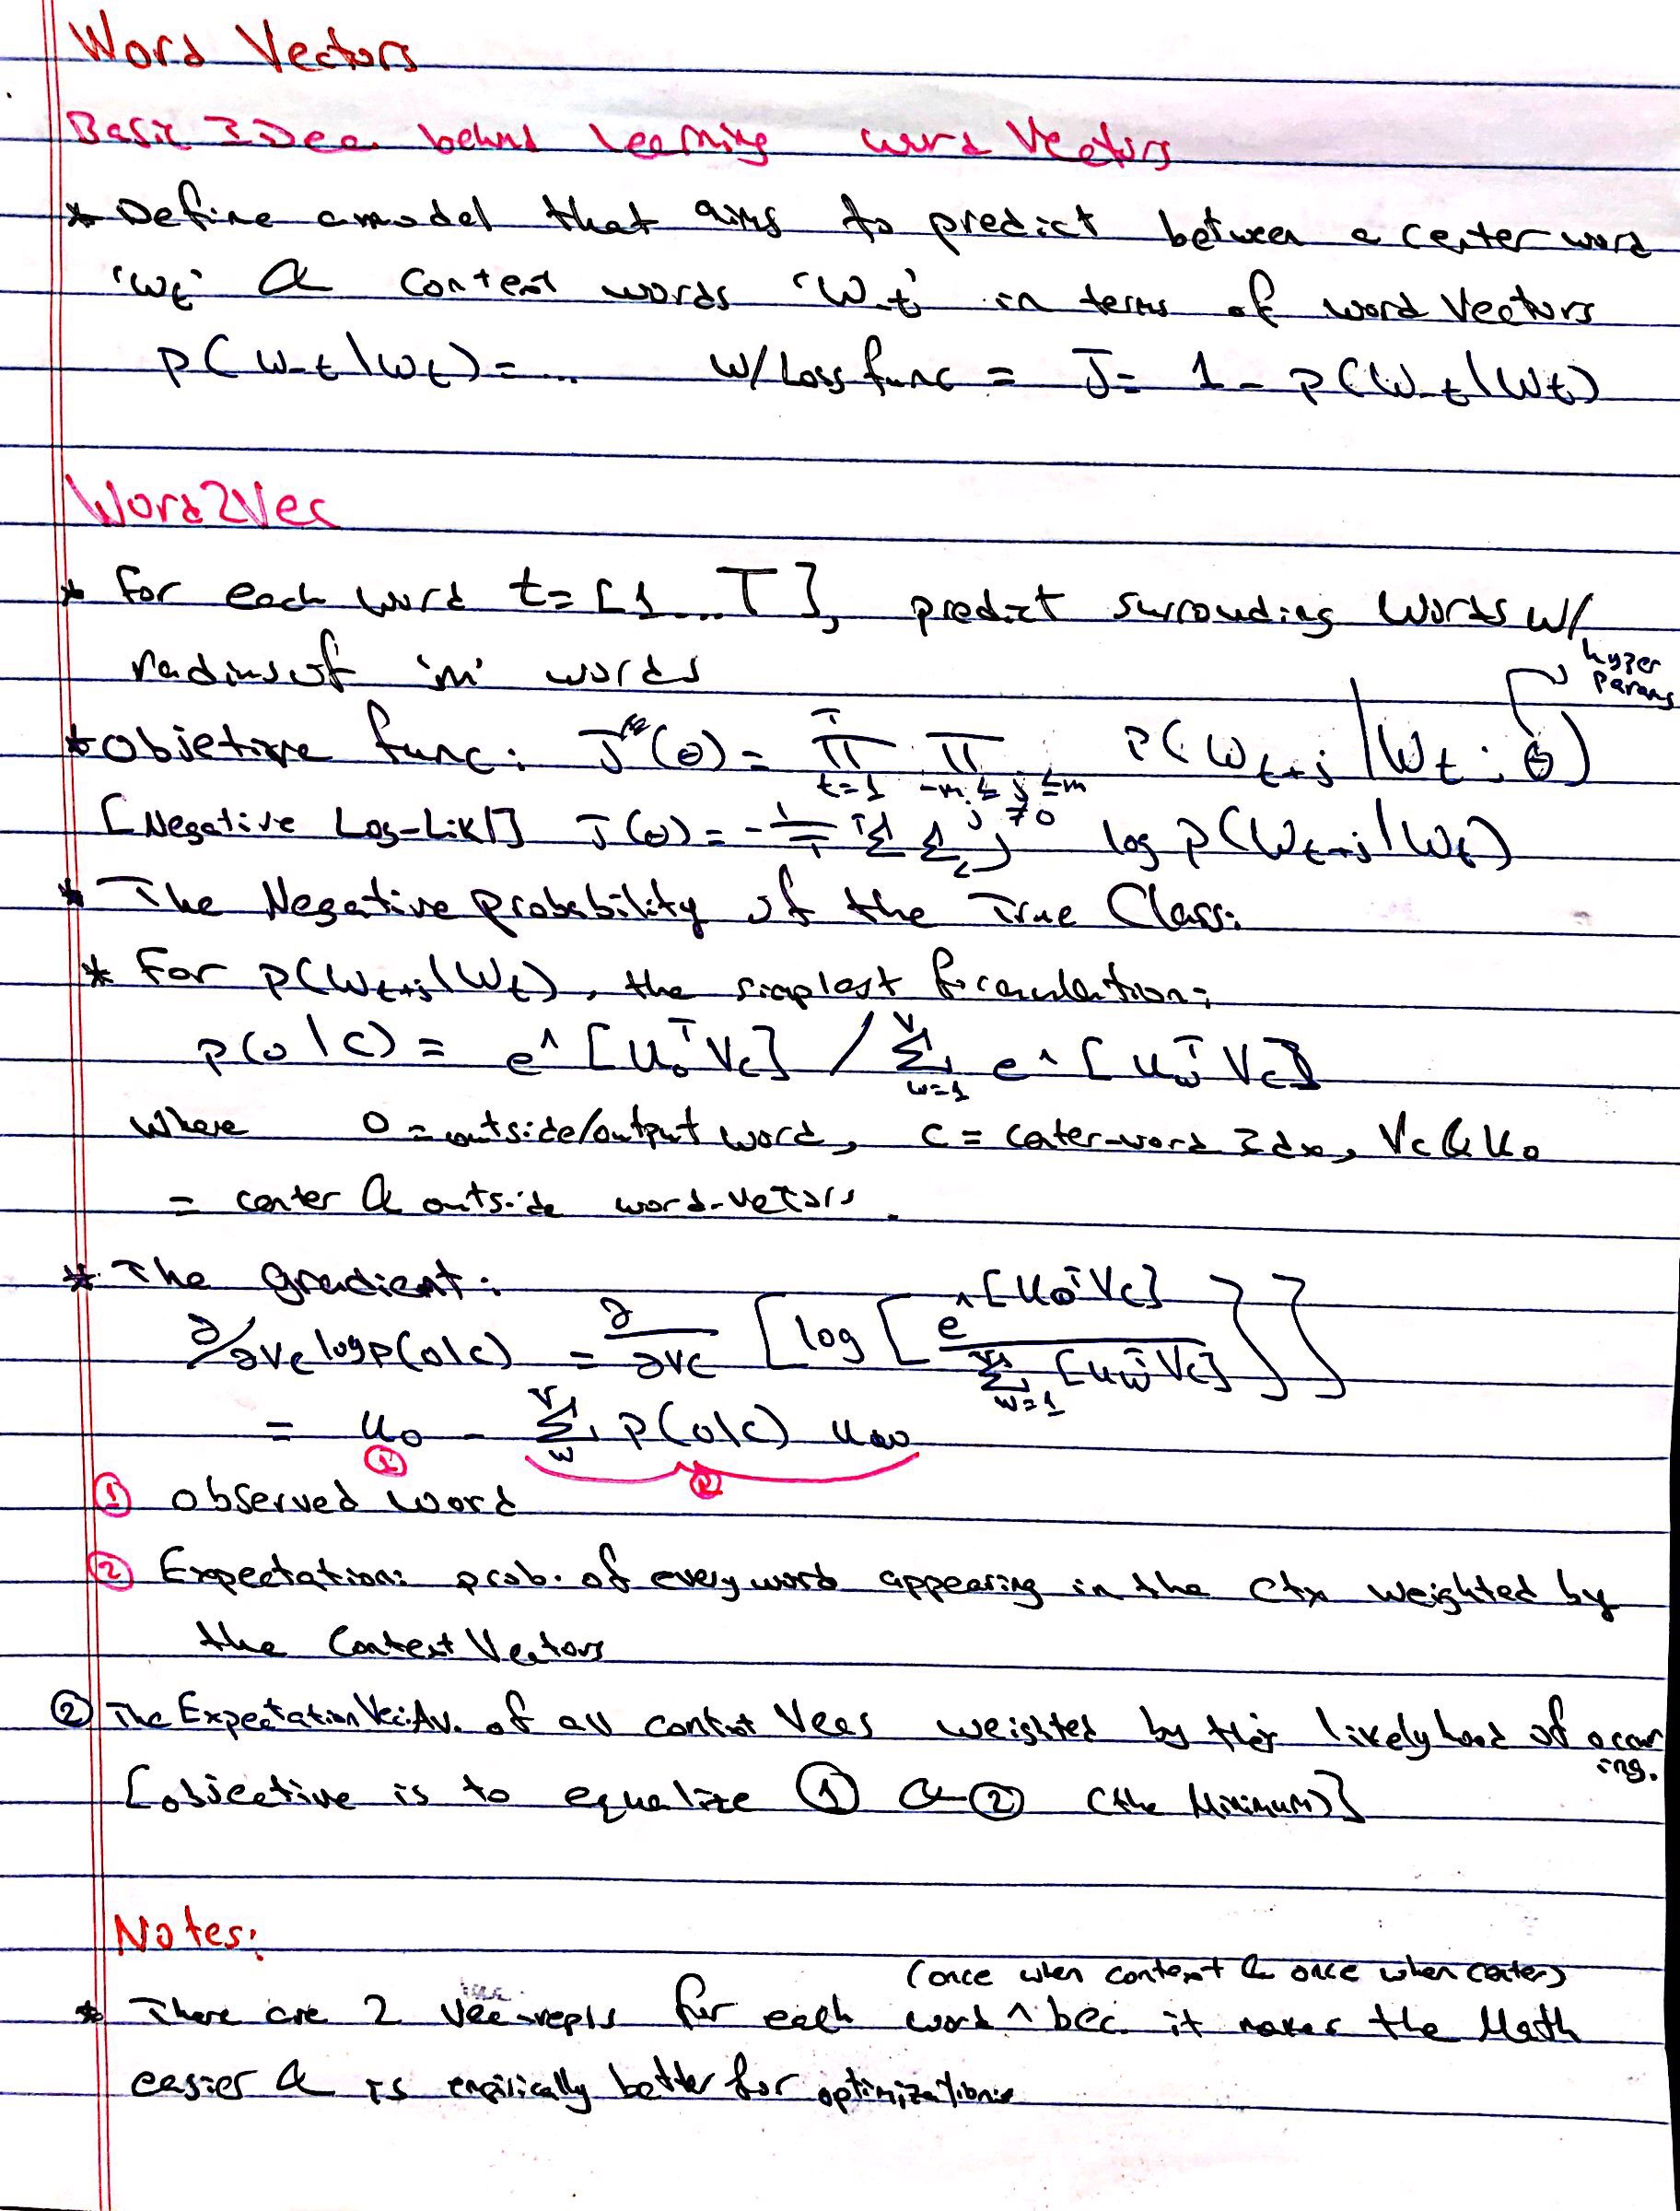 Word Vectors
Basic Idea behind learning word Vectors
* Define a model that aims to predict between a center word
'wₜ' & Context words 'w₋ₜ' in terms of word Vectors
P(w₋ₜ|wₜ) = ... w/ Loss func = J = 1 - P(w₋ₜ|wₜ)
Word2Vec
* for each word t = [1...T], predict surrouding words w/
radius of 'm' words
hyper
params
* Objetive func: J'(θ) = ∏_{t=1}^{T} ∏_{-m ≤ j ≤ m, j≠0} P(w_{t+j} | w_t ; θ)
[Negative Log-Lik] J(θ) = -1/T Σ^T Σ_j log p(w_{t+j}|w_t)
* The Negative probability of the True Class.
* For p(w_{t+j}|w_t), the simplest formulation:
p(o|c) = e^[u_o^T V_c] / Σ_{w=1}^{V} e^[u_w^T V_c]
Where o = outside/output word, c = center-word Idx, V_c & u_o
= center & outside word-vetors.
* The gradient:
∂/∂V_c log p(o|c) = ∂/∂V_c [log [e^[u_o^T V_c] / Σ_{w=1}^{V} [u_w^T V_c]]]
= u_o - Σ_w^V p(o|c) u_w
① ②
① observed word
② Expectation: prob. of every word appearing in the ctx weighted by
the Context Vectors
② The Expectation Vec: Av. of all context Vecs weighted by their likelyhood of occuring.
[objective is to equalize ① & ② (the Minimum)]
Notes:
(once when context & once when center)
* There are 2 vec-repls for each word ^ bec. it makes the Math
easier & is empirically better for optimization